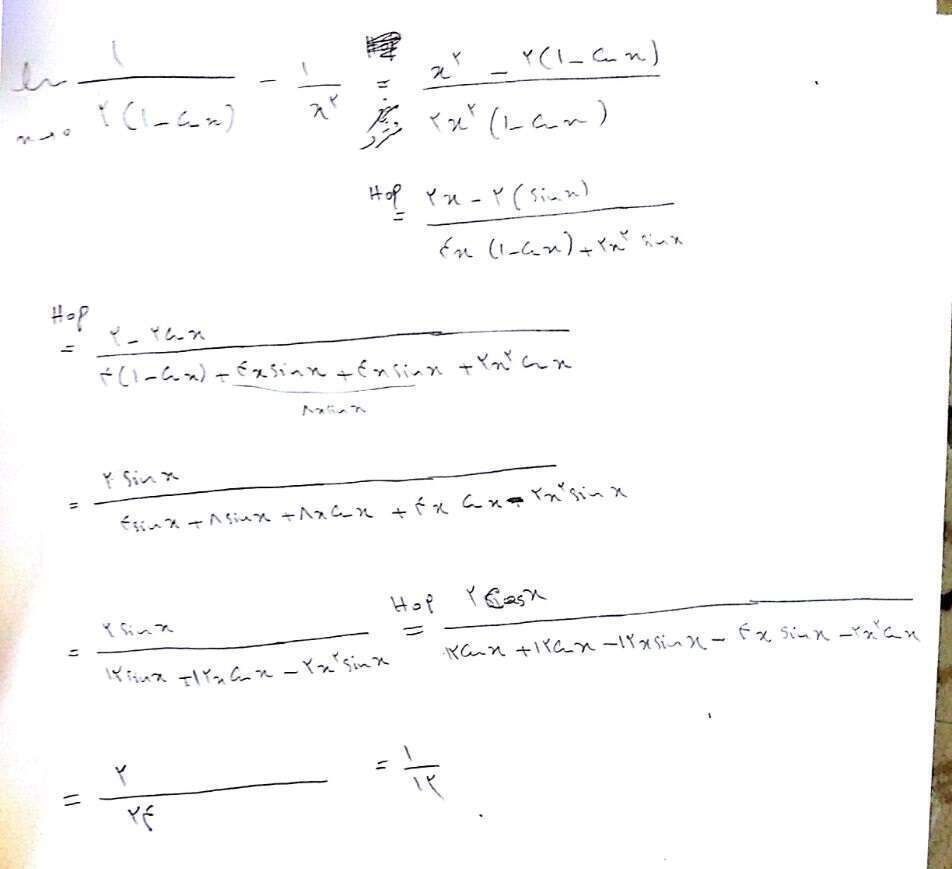 lim x→۰ ۱/۲(۱-cosx) - ۱/x^۲ = x^۲ - ۲(۱-cosx)/۲x^۲(۱-cosx)
Hop = ۲x-۲(sinx)/۴x(۱-cosx)+۲x^۲ sinx
Hop = ۲-۲cosx/۴(۱-cosx)+۴xsinx+۴xsinx+۲x^۲cosx
۸xsinx
= ۲sinx/۴sinx+۸sinx+۸xcosx+۴xcosx-۲x^۲sinx
= ۲sinx/۱۲sinx+۱۲xcosx-۲x^۲sinx Hop = ۲cosx/۱۲cosx+۱۲cosx-۱۲xsinx-۴xsinx-۲x^۲cosx
= ۲/۲۴ = ۱/۱۲